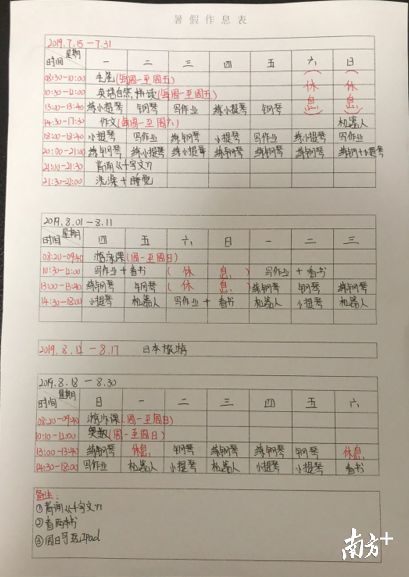 暑假作息表
2019.7.15-7.31
星期 时间 一 二 三 四 五 六 日
08:30-10:00 (每周一至周五) (休
10:30-12:00 (每周一至周五) 休
13:00-13:40 练小提琴 钢琴 写作业 练小提琴 钢琴 息)
14:30-17:30 作文(每周一至周六) 机器人
18:00-18:40 小提琴 写作业 练钢琴 小提琴 写作业 练钢琴 写作业
20:00-21:00 练钢琴 练小提琴 练小提琴 练钢琴 练钢琴 练钢琴 练钢+小提琴
21:00-21:30
21:30-22:00 洗澡+睡觉
2019.8.01-8.11
星期 时间 四 五 六 日 一 二 三
08:20-09:40 游泳课(周一至周日)
10:30-12:00 写作业+看书 (休息) 写作业+看书
13:00-13:40 练钢琴 钢琴 (休息) 练钢琴 钢琴 练钢琴
14:30-18:00 小提琴 机器人 写作业+看书 机器人 小提琴 机器人
2019.8.12-8.17 日本旅游
2019.8.18-8.30
星期 时间 日 一 二 三 四 五 六
08:20-09:40 游泳课(周一至周日)
10:10-12:00 奥数(周一至周日)
13:00-13:40 练钢琴 休息 钢琴 练钢琴 练钢琴 钢琴 休息
14:30-18:00 写作业 机器人 小提琴 机器人 小提琴 小提琴 看书
备注:
①
②看两本书
③周日可玩ipad
南方+